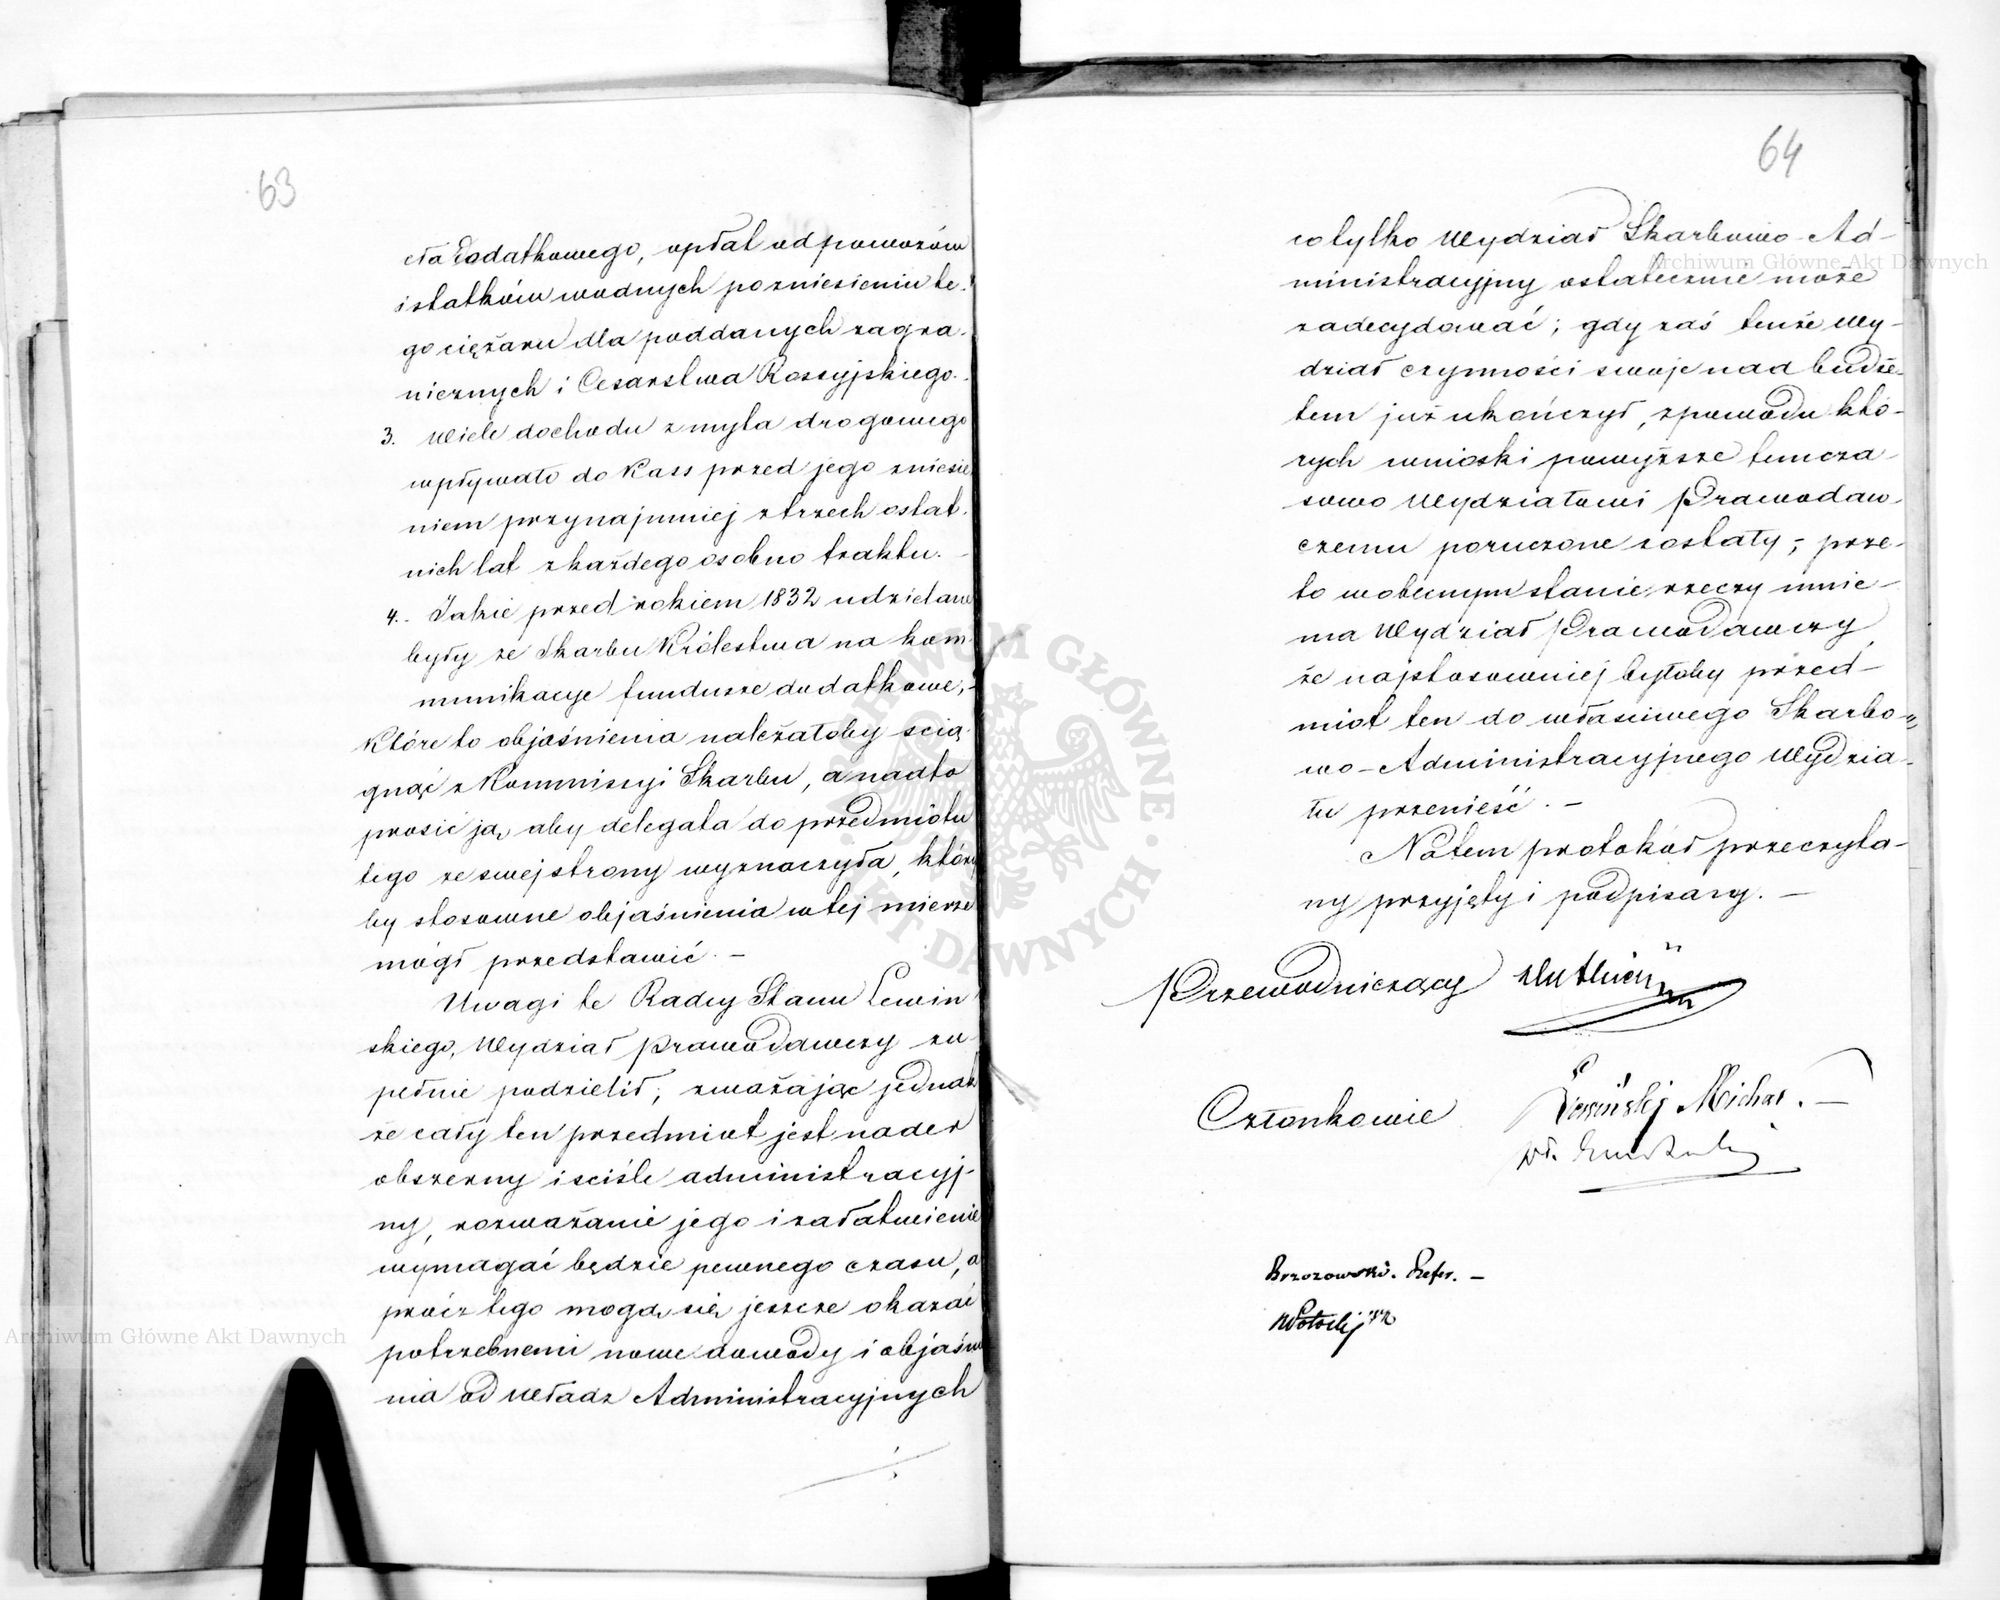 63
cła Dodatkowego, opłat od powozów
i statków wodnych po zniesieniu te-
go ciężaru dla poddanych zagra-
nicznych i Cesarstwa Rossyjskiego.
3. Wiele dochodu z myta drogowego
wpływało do Kass przed jego zniesie
niem przynajmniej z trzech ostat-
nich lat z każdego osobno traktu. –
4. Jakie przed rokiem 1832 udzielane
były ze Skarbu Królestwa na kom
munikacye fundusze dodatkowe, –
Które to objaśnienia należałoby scią-
gnąć z Kommissyi Skarbu, a nadto
prosić ją, aby delegata do przedmiotu
tego ze swej strony wyznaczyła, który
by stosowne objaśnienia w tej mierze
mógł przedstawić. –
Uwagi te Radcy Stanu Lewin
skiego, Wydział Prawodawczy zu-
pełnie podzielił; zważając jednak
że cały ten przedmiot jest nader
obszerny i sciśle administracyj-
ny, rozważanie jego i załatwienie
wymagać będzie pewnego czasu, a
prócz tego mogą się jeszcze okazać
potrzebnemi nowe dowody i objaśnie
nia od Władz Administracyjnych
64
co tylko Wydział Skarbowo-Ad-
ministracyjny ostatecznie może
zadecydować; gdy zaś tenże Wy-
dział czynności swoje nad budże-
tem już ukończył, z powodu któ-
rych wnioski powyższe tymcza-
sowo Wydziałowi Prawodaw-
czemu poruczone zostały; – prze-
to w obecnym stanie rzeczy mnie-
ma Wydział Prawodawczy,
że najstosowniej byłoby przed-
miot ten do właściwego Skarbo-
wo-Administracyjnego Wydzia-
łu przenieść. –
Na tem protokół przeczyta-
ny przyjęty i podpisany. –
Przewodniczący
Członkowie Lewiński Michał. –
Wł.
Brzozowski. Refer. –
WPotocki
ARCHIWUM GŁÓWNE AKT DAWNYCH
Archiwum Główne Akt Dawnych
Archiwum Główne Akt Dawnych